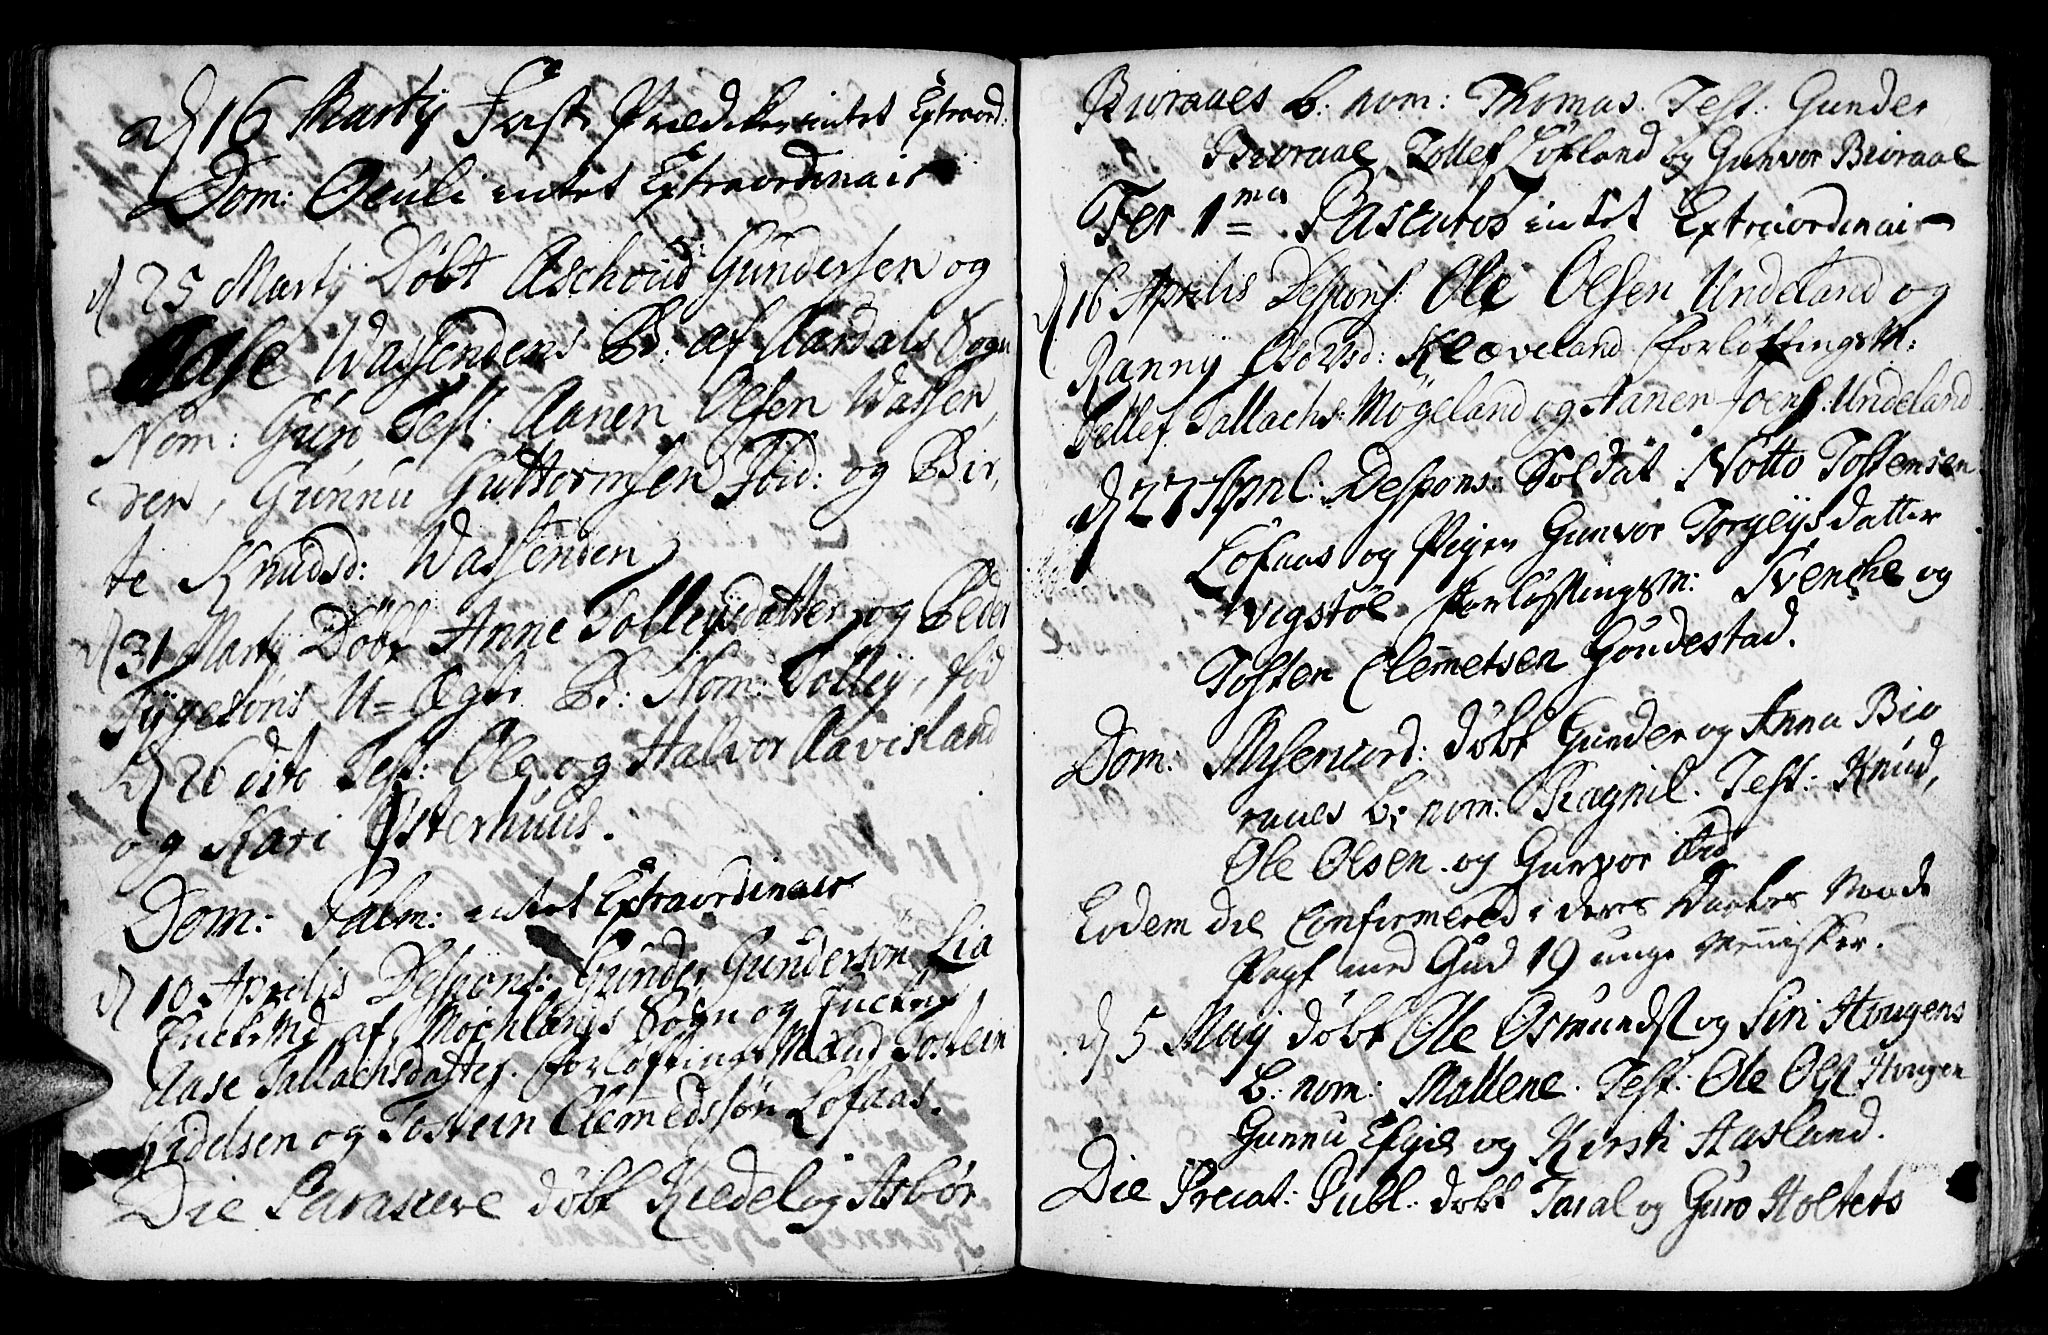 d 16 Martÿ Fast Prædiken intet Extraord:
Dom: Oculi intet Extraordinair
d 25 Martÿ Døbt Aschoud Gundersen og
Aase Wassendens B: af Aardals Sogn
Nom: Guro Test: Aanen Olsen Wassen,
den, Gunnu Guttormsen Ibid: og Bir,
te Knudsd: Wassenden
d 31 Martÿ Døbt Anne Tolleÿsdatter og Peder
Tÿgesøns U= Ægte B: Nom: Tolleÿ, fød
d 26 dito Test: Ole og Halvor Aavisland
og Kari Østerhuus.
Dom: Palm: intet Extraordinair
d 10 Aprilis Despons: Gunder Gundersøn Lia
Enckemd af Mochlands Sogn og Encken
Aase Tallachsdatter. Forløftings Mænd Tostein
Kidelsen og Tostein Clemedssøn Lofaas.
Die Parasceve døbt Kiedel og Asbør
Bioraaes b: nom: Thomas. Test: Gunder
Bioraae, Tollef Løkland og Gunvor Bioraae
Fer 1ma Paschatos intet Extraordinair
d 16 Aprilis Despons: Ole Olsen Undeland og
Ranny Sd: Kleveland forløftingsM:
Tellef Tallachs: Møgeland og Aanen Joens: Undeland
d 27 Apnl: Despons: Soldat Notto Tostensen
Lofaas og Pigen Gunvor Torgeÿsdatter
Vigstøl Forløftingsm: Svenche og
Tosten Clemetsen Goudestad.
Dom: Misericord: døbt Gunder og Anna Bio
raaes b: nom: Ragnil. Test: Knud,
Ole Olsen. og Gunvor ibid
Eodem die Confirmered i deres Daabes Naade
Pagt med Gud 19 unge Mennisker.
d 5 Maÿ døbt Ole Osmunds og Siri Hougens
b: nom: Mallene. Test: Ole Ols Hougen
Gunnu Efgie og Kirsti Hasland.
Die Precat: Publ: døbt Taral og Guro Holtets